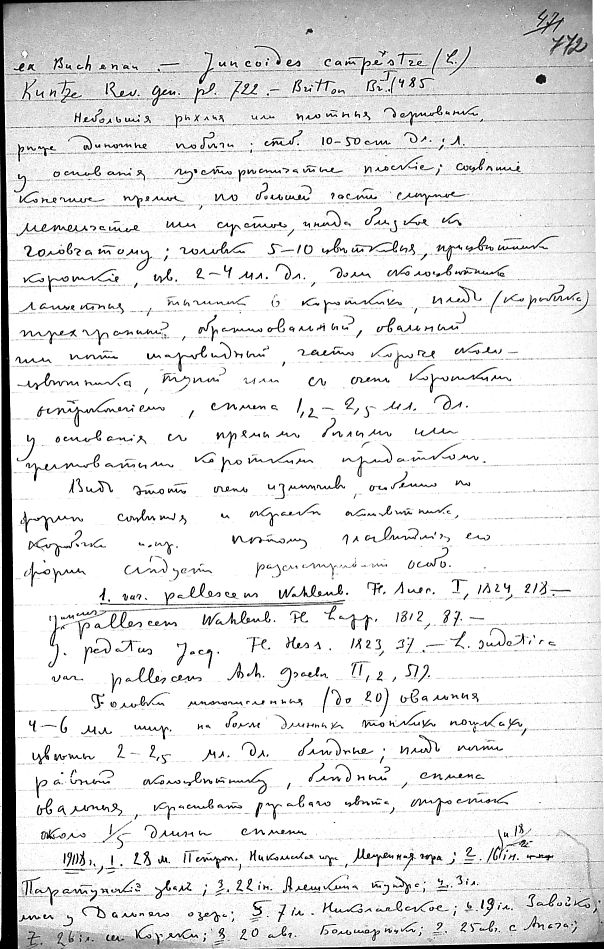 471
772
ex Buchenau. — Juncoides campestre (L.)
Kuntze Rev. gen. pl. 722. — Britton Br. I 485
Небольшія рыхлыя или плотныя дерновинки,
рѣже одиночные побѣги; стб. 10–50 cm дл.; л.
у основанія плоскіе; соцвѣтіе
конечное прямое, по большей части сложное
метельчатое или простое, иногда близкое къ
головчатому; головки 5–10 цвѣтковыя, прицвѣтники
короткіе, цв. 2–4 мл. дл., доли околоцвѣтника
ланцетныя, тычинки 6 короткихъ, плодъ (коробочка)
трехгранный, овальный
или почти шаровидный, часто короче около-
цвѣтника, тупой или съ очень короткимъ
остроконечіемъ, сѣмена 1,2–2,5 мл. дл.
у основанія съ прямымъ бѣлымъ или
желтоватымъ короткимъ придаткомъ.
Видъ этотъ очень измѣнчивъ, особенно по
формѣ соцвѣтія и окраскѣ околоцвѣтника,
коробочки и пр. поэтому главнѣйшія его
формы слѣдуетъ разсматривать особо.
1. var. pallescens Wahlenb. Fl. Suec. I, 1824, 218. —
Juncus pallescens Wahlenb. Fl. Lapp. 1812, 87. —
J. pedatus Jacq. Fl. Hess. 1823, 37. — L. sudetica
var. pallescens Asch. Graebn. II, 2, 519.
Головки многочисленныя (до 20) овальныя
4–6 мл. шир. на болѣе длинныхъ тонкихъ ножкахъ,
цвѣты 2–2,5 мл. дл. блѣдные; плодъ почти
равный околоцвѣтнику, блѣдный, сѣмена
овальныя, красновато цвѣта, отростокъ
около 1/5 длины сѣмени
1908 г., 1. 28 м. Петроп. Никольская гора, Мишенная гора; 2. 16 іл. и 18
Паратунскій увалъ; 3. 22 іл. Алешкина тундра; 4. 3 іл.
у Дальнего озера; 5. 7 іл. Николаевское; 6. 19 іл. Завойко;
7. 26 іл. сел. Коряки; 8. 20 авг. Большерѣцкъ; 9. 25 авг. с. Апача;